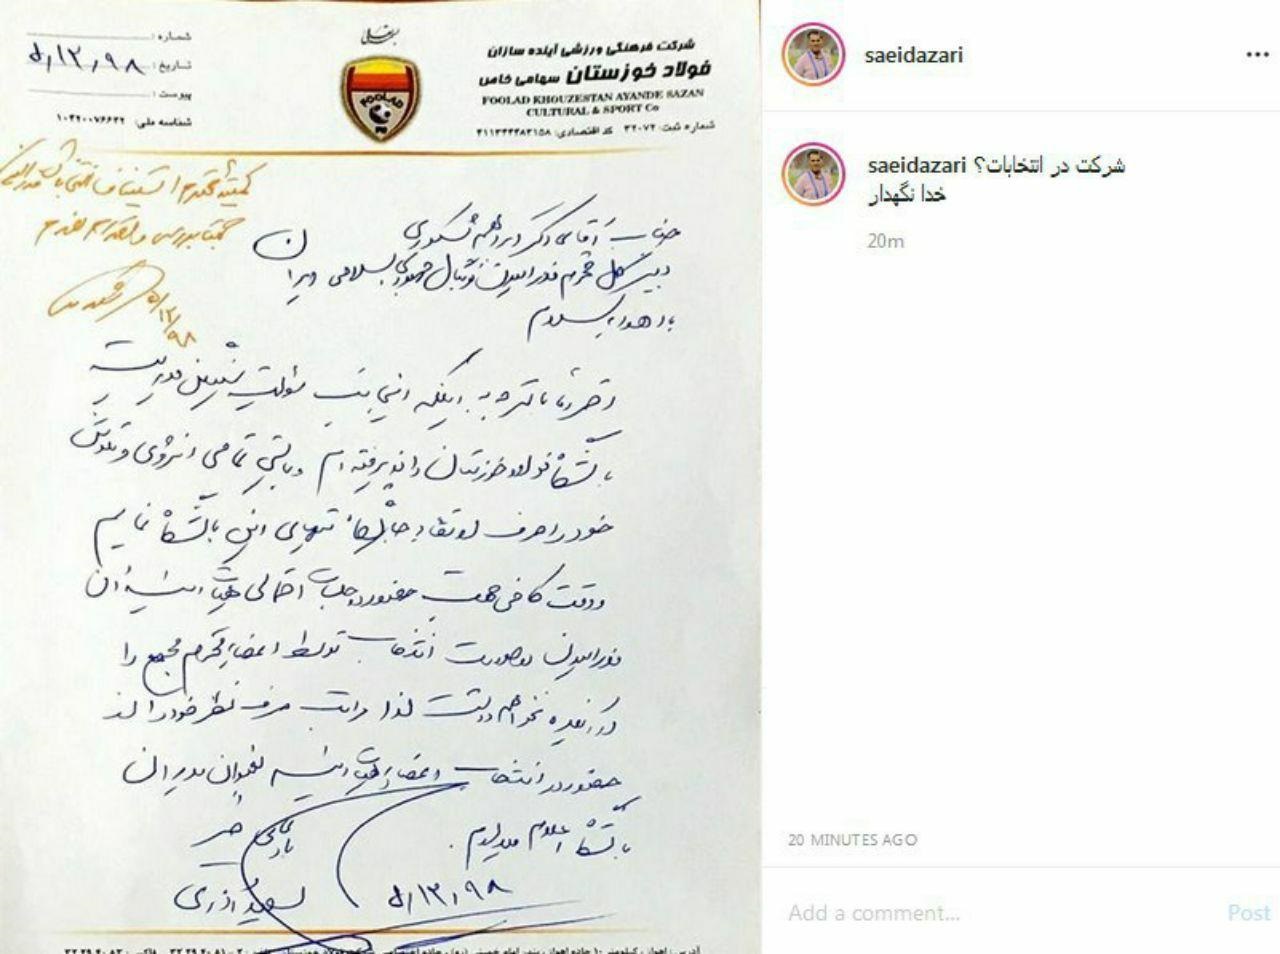 شماره:
تاریخ: ۵،۱۲،۹۸
پیوست:
شناسه ملی: ۱۰۴۲۰۰۷۶۶۳۲
بسمه تعالی
FOOLAD
شرکت فرهنگی ورزشی آینده سازان
فولاد خوزستان سهامی خاص
FOOLAD KHOUZESTAN AYANDE SAZAN
CULTURAL & SPORT Co
شماره ثبت: ۳۲۰۷۲ کد اقتصادی: ۴۱۱۳۴۴۴۸۳۱۵۸
کمیته محترم استیناف انتخابات فدراسیون
جهت بررسی و اقدام لازم
۵/۱۲/۹۸
جناب آقای دکتر ابراهیم شکوری
دبیر کل محترم فدراسیون فوتبال جمهوری اسلامی ایران
با اهداء سلام
احتراما با توجه به اینکه اینجانب مسئولیت سنگین مدیریت
باشگاه فولاد خوزستان را پذیرفته ام و بایستی تمامی انرژی و تلاش
خود را صرف ارتقاء جایگاه تیمهای این باشگاه نمایم
و وقت کافی جهت حضور در جلسات احتمالی هیات رئیسه آن
فدراسیون در صورت انتخاب توسط اعضاء محترم مجمع را
در آینده نخواهم داشت لذا مراتب صرف نظر خود را از
حضور در انتخابات اعضاء هیات رئیسه بعنوان مدیران
باشگاه اعلام میدارم.
سعید آذری
۵،۱۲،۹۸
saeidazari
saeidazari شرکت در انتخابات؟
خدا نگهدار
20m
20 MINUTES AGO
Add a comment...
Post